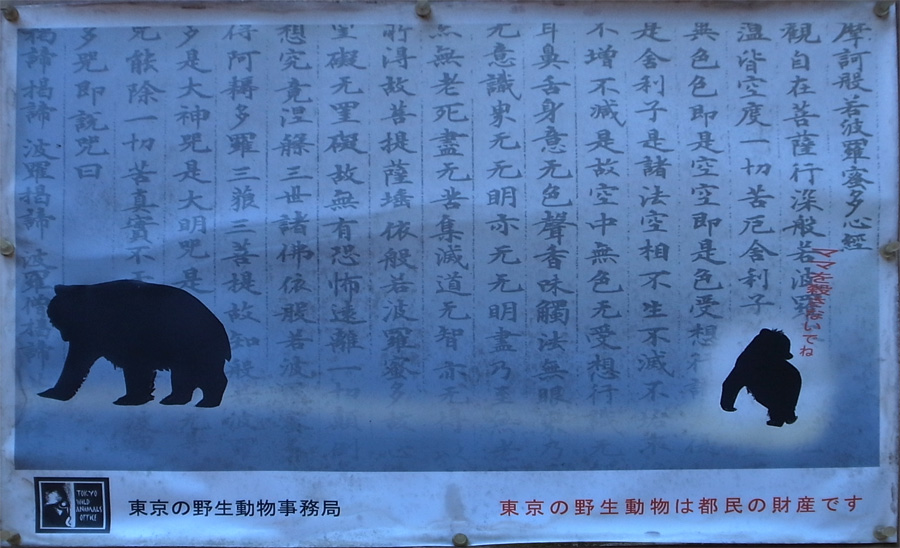 摩訶般若波羅蜜多心經
觀自在菩薩行深般若波羅
蘊皆空度一切苦厄舍利子
異色色即是空空即是色受想行
是舍利子是諸法空相不生不滅不
不增不減是故空中無色无受想行
耳鼻舌身意无色聲香味觸法無眼
无意識界无无明亦无无明盡乃至
無老死盡无苦集滅道无智亦无
所得故菩提薩埵依般若波羅蜜多
罣礙无罣礙故無有恐怖遠離一切顛倒
想究竟涅槃三世諸佛依般若波
得阿耨多羅三藐三菩提故知般
多是大神咒是大明咒是
咒能除一切苦真實不
多咒即說咒曰
揭諦揭諦 波羅揭諦 波羅僧揭諦
ママを殺さないでね
TOKYO
WILD
ANIMALS
OFFICE
東京の野生動物事務局
東京の野生動物は都民の財産です